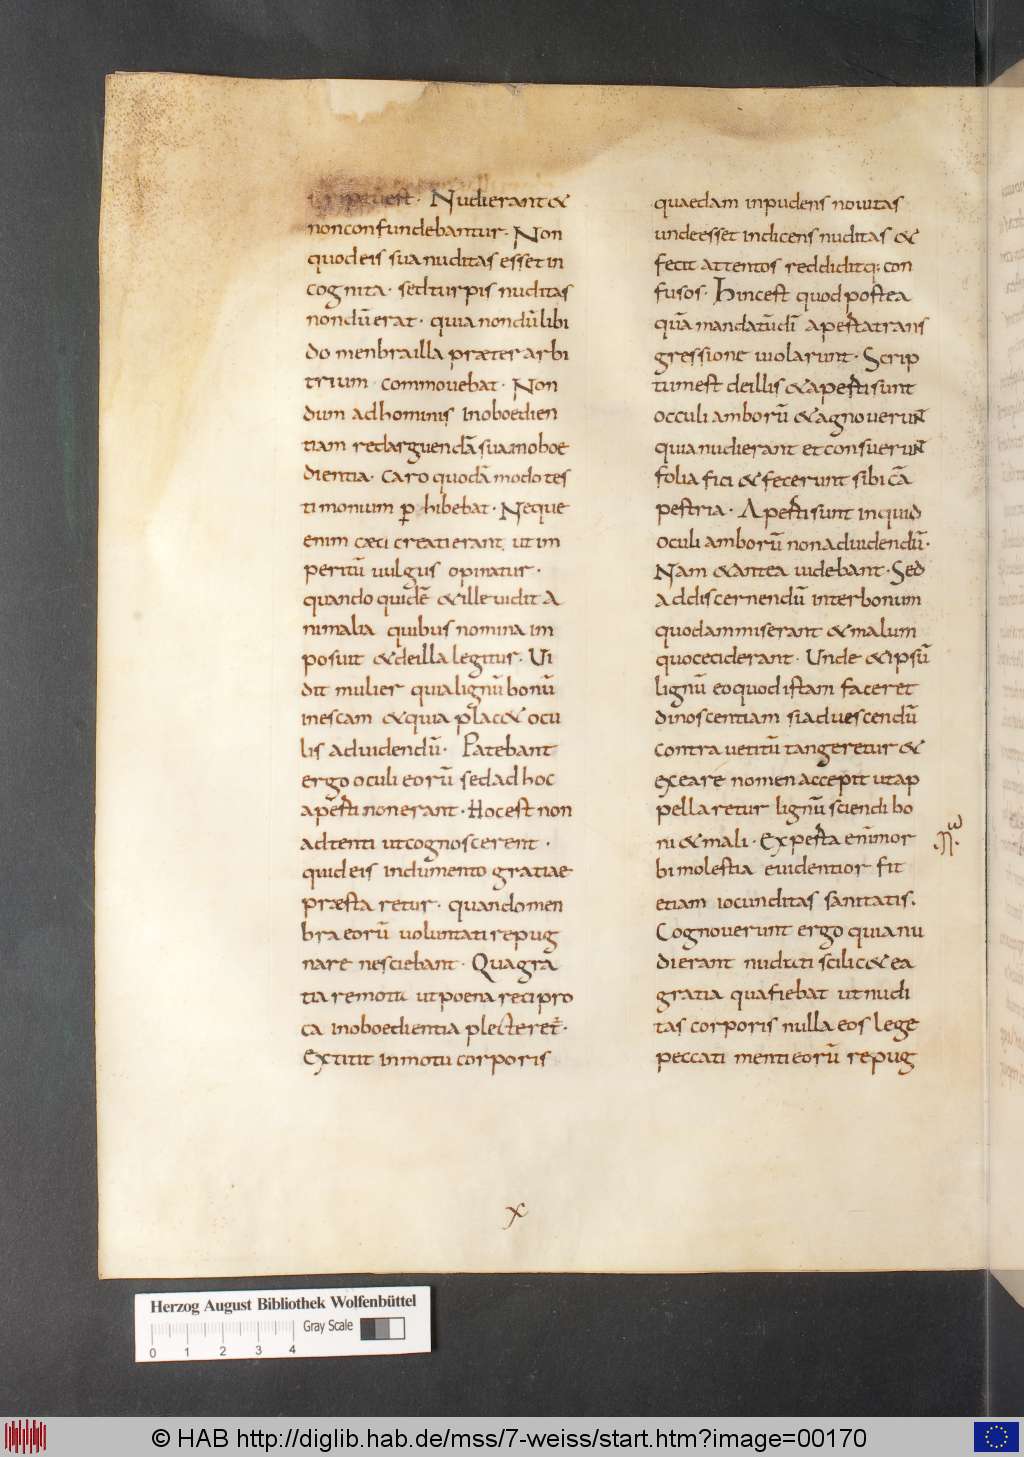 scriptu est · Nudi erant &
non confundebantur · Non
quod eis sua nuditas esset in
cognita · sed turpis nuditas
nondū erat · quia nondū libi
do menbra illa præter arbi
trium commouebat · Non
dum ad hominis inoboedien
tiam redarguendā sua inoboe
dientia · caro quodā modo tes
timonium ꝑhibebat · Neque
enim cæci creati erant ut im
peritū uulgus opinatur ·
quando quidē & ille uidit a
nimalia quibus nomina im
posuit & de illa legitur · Ui
dit mulier quia lignū bonū
in escam & quia plac& ocu
lis ad uidendū · Patebant
ergo oculi eorū sed ad hoc
ap̄ti non erant · Hoc est non
adtenti ut cognoscerent ·
quid eis indumento gratiae
præsta retur · quando men
bra eorū uoluntati repug
nare nesciebant · Qua gra
tia remota ut poena recipro
ca inoboedientia plecteret̄ ·
Extitit in motu corporis
quaedam inpudens nouitas
unde esset indicens nuditas &
fecit attentos reddiditq; con
fusos · Hinc est quod postea
quā mandatū dī aperta trans
gressione uiolarunt · Scrip
tum est de illis & aperti sunt
occuli amborū & agnouerunt
quia nudi erant et consuerunt
folia fici & fecerunt sibi cā
pestria · Aperti sunt inquid
oculi amborū non ad uidendū ·
Nam & antea uidebant · Sed
ad discernendū inter bonum
quod ammiserant & malum
quo ceciderant · Unde & ipsū
lignū eo quod istam faceret
dinoscentiam si ad uescendū
contra uetitū tangeretur &
ex ea re nomen accepit ut ap
pellaretur lignū sciendi bo
ni & mali · Experta enī mor
bi molestia euidentior fit
etiam iocunditas sanitatis.
Cognouerunt ergo quia nu
di erant nudati scilic& ea
gratia qua fiebat ut nudi
tas corporis nulla eos lege
peccati menti eorū repug
x
Herzog August Bibliothek Wolfenbüttel
Gray Scale
0 1 2 3 4
© HAB http://diglib.hab.de/mss/7-weiss/start.htm?image=00170